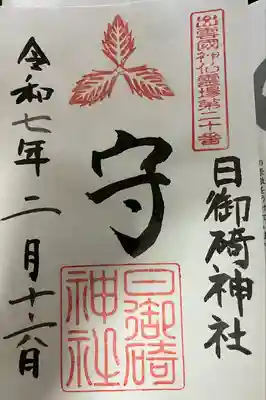 出雲國神仏霊場第二十番
日御碕神社
守
日御碕神社
令和七年二月十六日